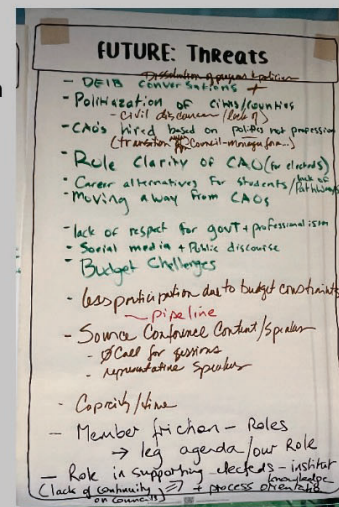 FUTURE: Threats
Dissolution of programs + policies
- DEIB Conversations +
- Politization of cities/counties
- civil discourse/lack of)
- CAOs hired based on politics not profession
(transition from council-manager form...)
- Role Clarity of CAO (for electeds)
- Career alternatives for students/lack of Pathways
- Moving away from CAOs
- lack of respect for govt + professionalism
- Social media + Public discourse
- Budget Challenges
- less participation due to budget constraints
~ pipeline
- Source Conference Content/Speakers
- Call for sessions
- representative speakers
- Capacity/time
- Member friction - Roles
→ leg agenda/our Role
- Role in supporting electeds - institut knowledge
(lack of continuity on councils) + process